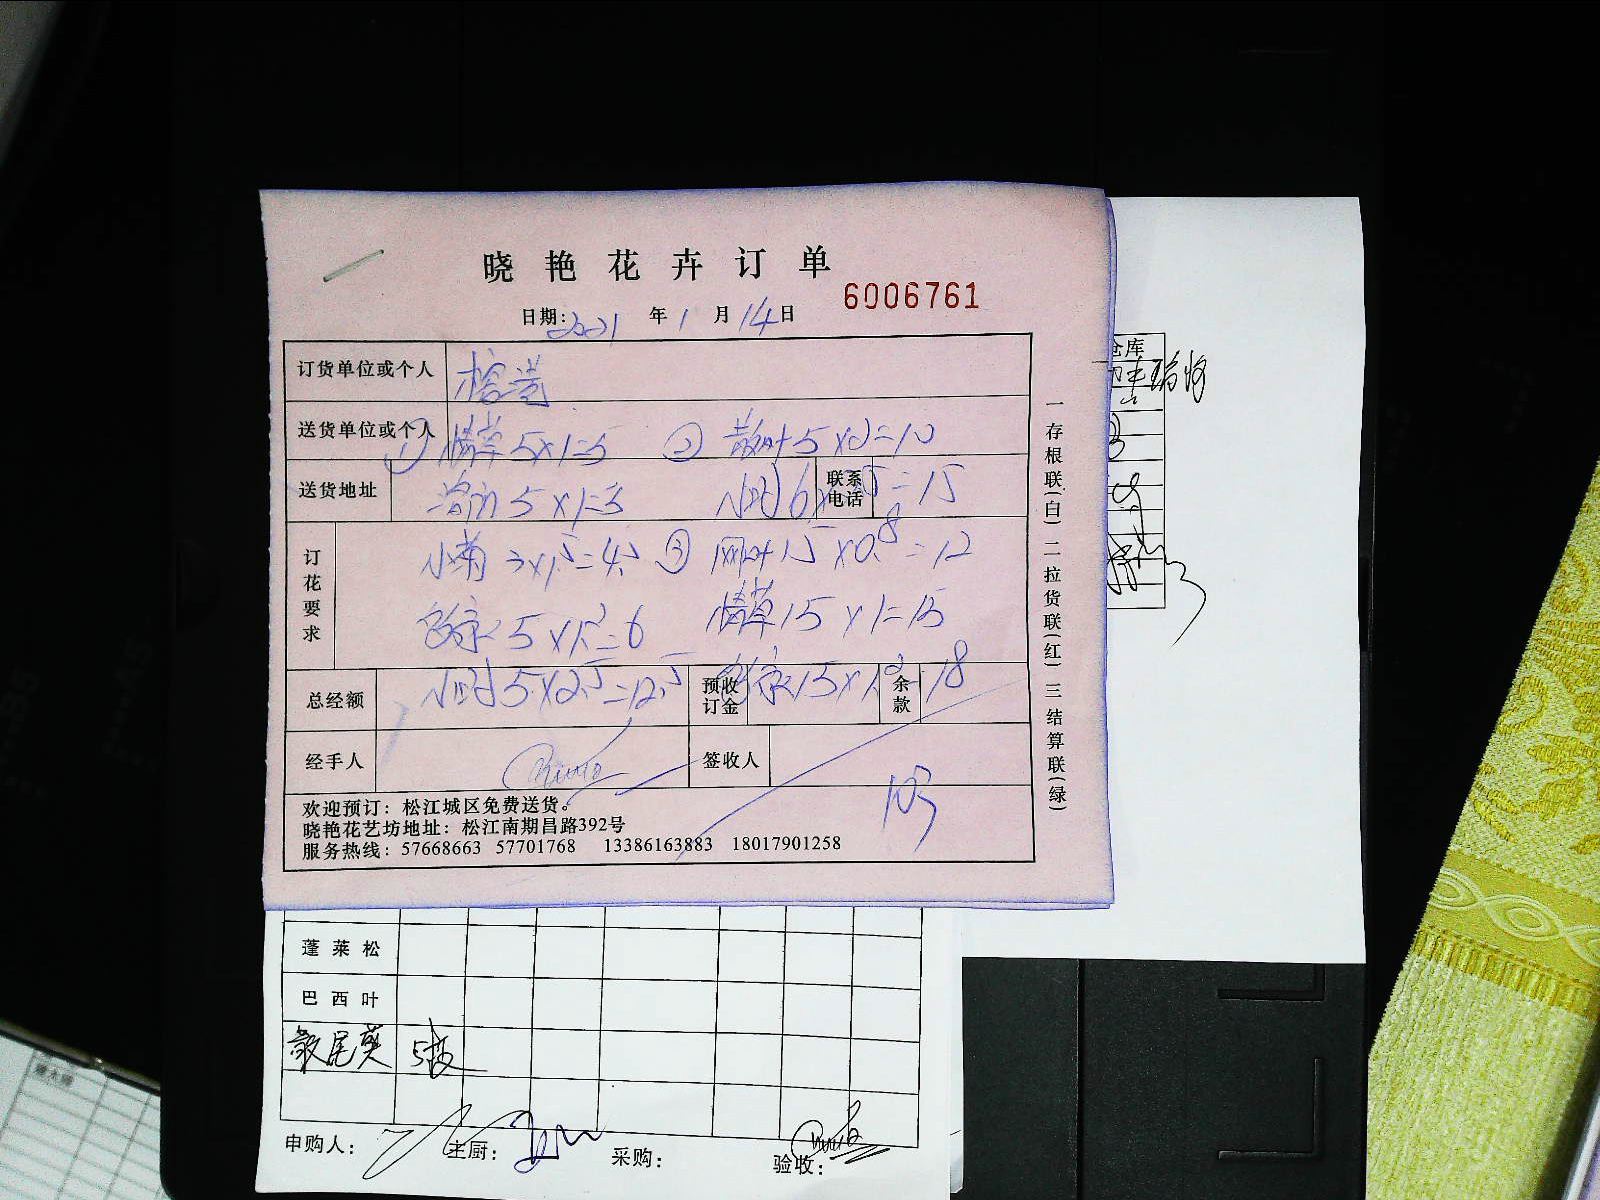 晓艳花卉订单
6006761
日期: 2021 年 1 月 14 日
订货单位或个人
送货单位或个人 ① 情草 5×1=5 ② 散叶 5×2=10
送货地址 5×1=5 联系电话 =15
小菊 3×1.5=4.5 ③ 15×0.8=12
订花要求
情草 15×1=15
5×1.2=6
总经额 5×2.5=12.5 预收订金 15×1.2 余款 =18
经手人 签收人
103
欢迎预订：松江城区免费送货。
晓艳花艺坊地址：松江南期昌路392号
服务热线：57668663 57701768 13386163883 18017901258
一存根联(白) 二拉货联(红) 三结算联(绿)
仓库
蓬莱松
巴西叶
散尾葵 5
申购人： 主厨： 采购： 验收：